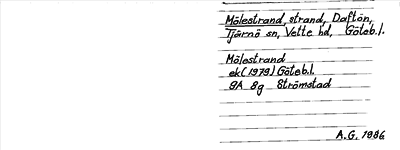 Mölestrand, strand, Daftön,
Tjärnö sn, Vette hd, Göteb.l.
Mölestrand
ek (1979) Göteb.l.
9A 8g Strömstad
A.G. 1986